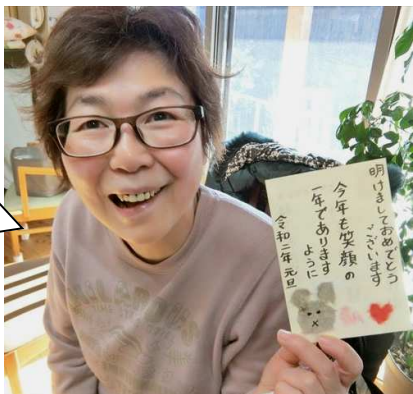 明けましておめでとう
ございます
今年も笑顔の
一年であります
ように
令和二年 元旦